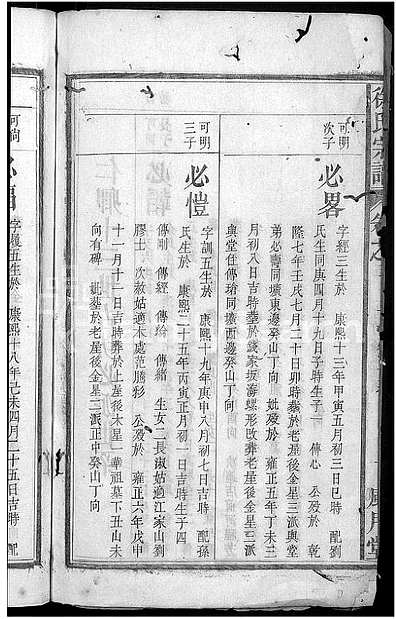 徐氏宗譜
可明
次子
必畧
字經三生於　康熙十三年甲寅五月初三日巳時　配劉
氏生同庚四月十九日子時生子一　傳心　公歿於　乾
隆七年壬戌七月二十日卯時葬於老屋後金星三派與堂
弟必壽同壙東邊癸山丁向　妣歿於　雍正五年丁未三
月初八日吉時葬於錢家塝海螺形改葬老屋後金星三派
與堂住傳瑜同壙西邊癸山丁向
可明
三子
必愷
字訓五生於　康熙十九年庚申八月初七日吉時　配孫
氏生於　康熙二十五年丙寅正月初一日吉時生子四
傳剛　傳經　傳綸　傳緒　生女二長淑姑適江家山劉
膠士　次赦姑適木處范勝彩　公歿於　雍正六年戊申
十一月十一日吉時葬於上屋後木星一華祖墓下丑山未
向有碑　妣葬於老屋後金星三派正中癸山丁向
可詢
必
字履五生於　康熙十八年己未四月二十五日吉時　配